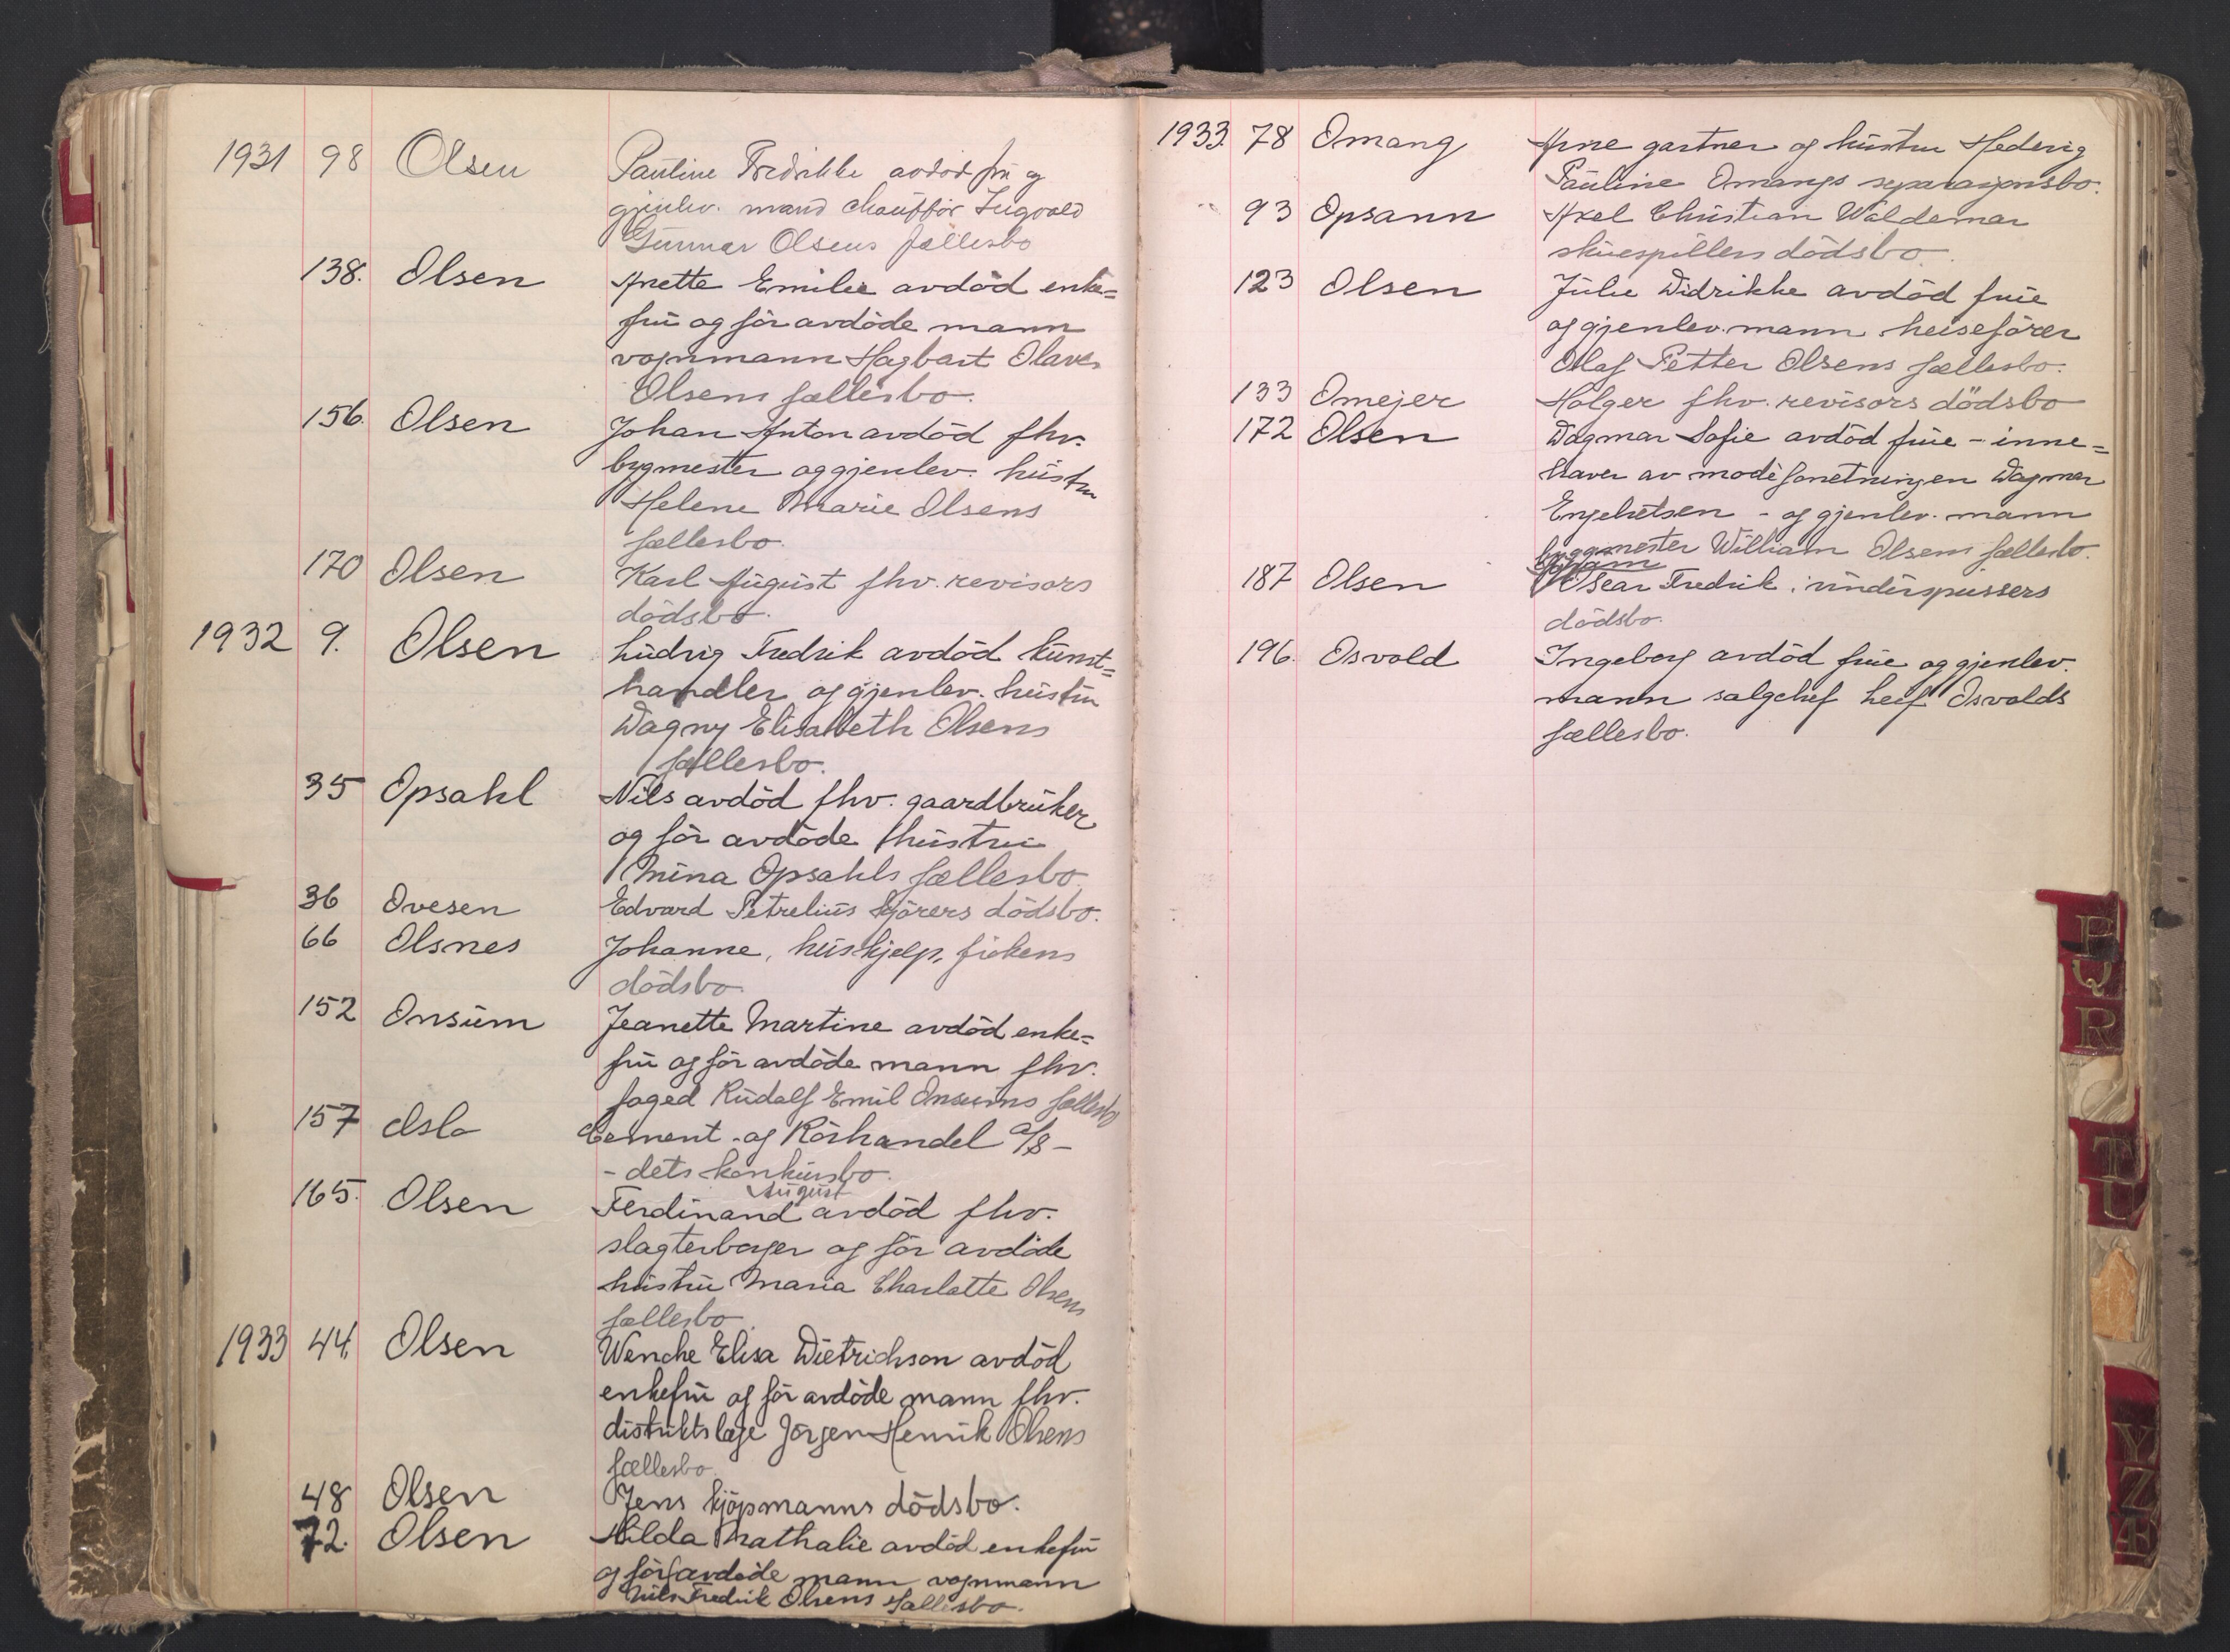 1931 98 Olsen Pauline Fredrikke avdød fru og
gjenlev. mand chauffør Ingvald
Gunnar Olsens fællesbo
138. Olsen Anette Emilie avdød enke=
fru og før avdøde mann
vognmann Hagbart Olaves
Olsens fællesbo.
156. Olsen Johan Anton avdød fhv.
bygmester og gjenlev. hustru
Helene Marie Olsens
fællesbo.
170 Olsen Karl August fhv. revisors
dødsbo.
1932 9. Olsen Ludvig Fredrik avdød kunst=
handler og gjenlev. hustru
Dagny Elisabeth Olsens
fællesbo.
35 Opsahl Nils avdød fhv. gaardbruker
og før avdøde hustru
Mina Opsahls fællesbo.
36 Ovesen Edvard Petrelius kjørers dødsbo.
66 Olsnes Johanne, hushjelp, frøkens
dødsbo
152 Onsum Jeanette Martine avdød enke=
fru og før avdøde mann fhv.
foged Rudolf Emil Onsums fællesbo
157 Oslo Cement- og Rörhandel a/s –
– dets konkursbo.
165. Olsen Ferdinand August avdød fhv.
slagterborger og før avdøde
hustru Maria Charlotte Olsens
fællesbo.
1933 44. Olsen Wenche Elisa Dietrichson avdød
enkefru og før avdøde mann fhv.
distriktslæge Jørgen Henrik Olsens
fællesbo.
48 Olsen Jens kjøpmanns dødsbo.
72. Olsen Hilda Mathalie avdød enkefru
og før avdøde mann vognmann
Nils Fredrik Olsens fællesbo.
1933. 78 Omang Arne gartner og hustru Hedevig
Pauline Omangs separasjonsbo.
93 Opsann Axel Christian Waldemar
skuespillers dødsbo.
123 Olsen Julie Didrikke avdød frue
og gjenlev. mann heisefører
Olaf Petter Olsens fællesbo.
133 Omejer Holger fhv. revisors dødsbo
172 Olsen Dagmar Sofie avdød frue – inne=
haver av modeforretningen Dagmar
Engebretsen – og gjenlev. mann
byggmester William Olsens fællesbo.
187 Olsen Oscar Fredrik vinduspussers
dødsbo.
196. Osvold Ingeborg avdød frue og gjenlev.
mann salgchef Leif Osvolds
fællesbo.
P
Q
R
T
U
Y
Z
Æ